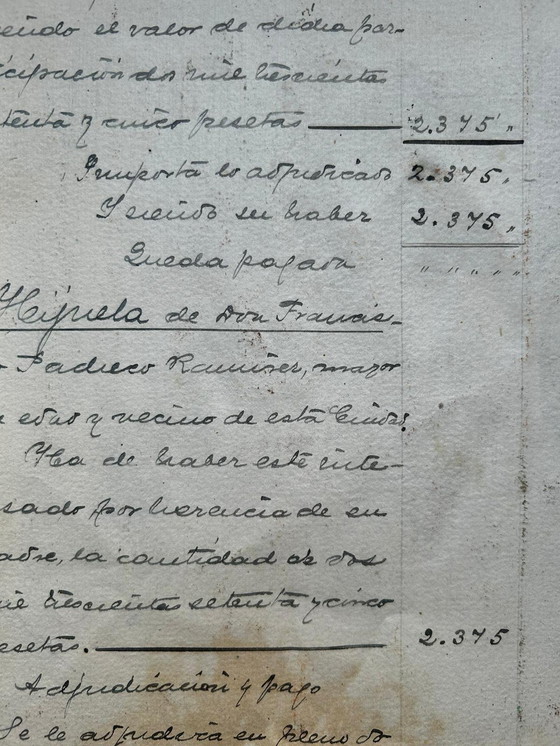 siendo el valor de dicha par-
ticipación dos mil trescientas
setenta y cinco pesetas 2.375 „
Importa lo adjudicado 2.375 „
Y siendo su haber 2.375 „
Queda pagada „ „ „ „ „
Hijuela de Don Francis-
Pacheco Ramirez, mayor
edad y vecino de esta Ciudad.
Ha de haber este inte-
sado por herencia de su
adre, la cantidad de dos
mil trescientas setenta y cinco
esetas. 2.375
Adjudicación y pago
Se le adjudica en pleno do